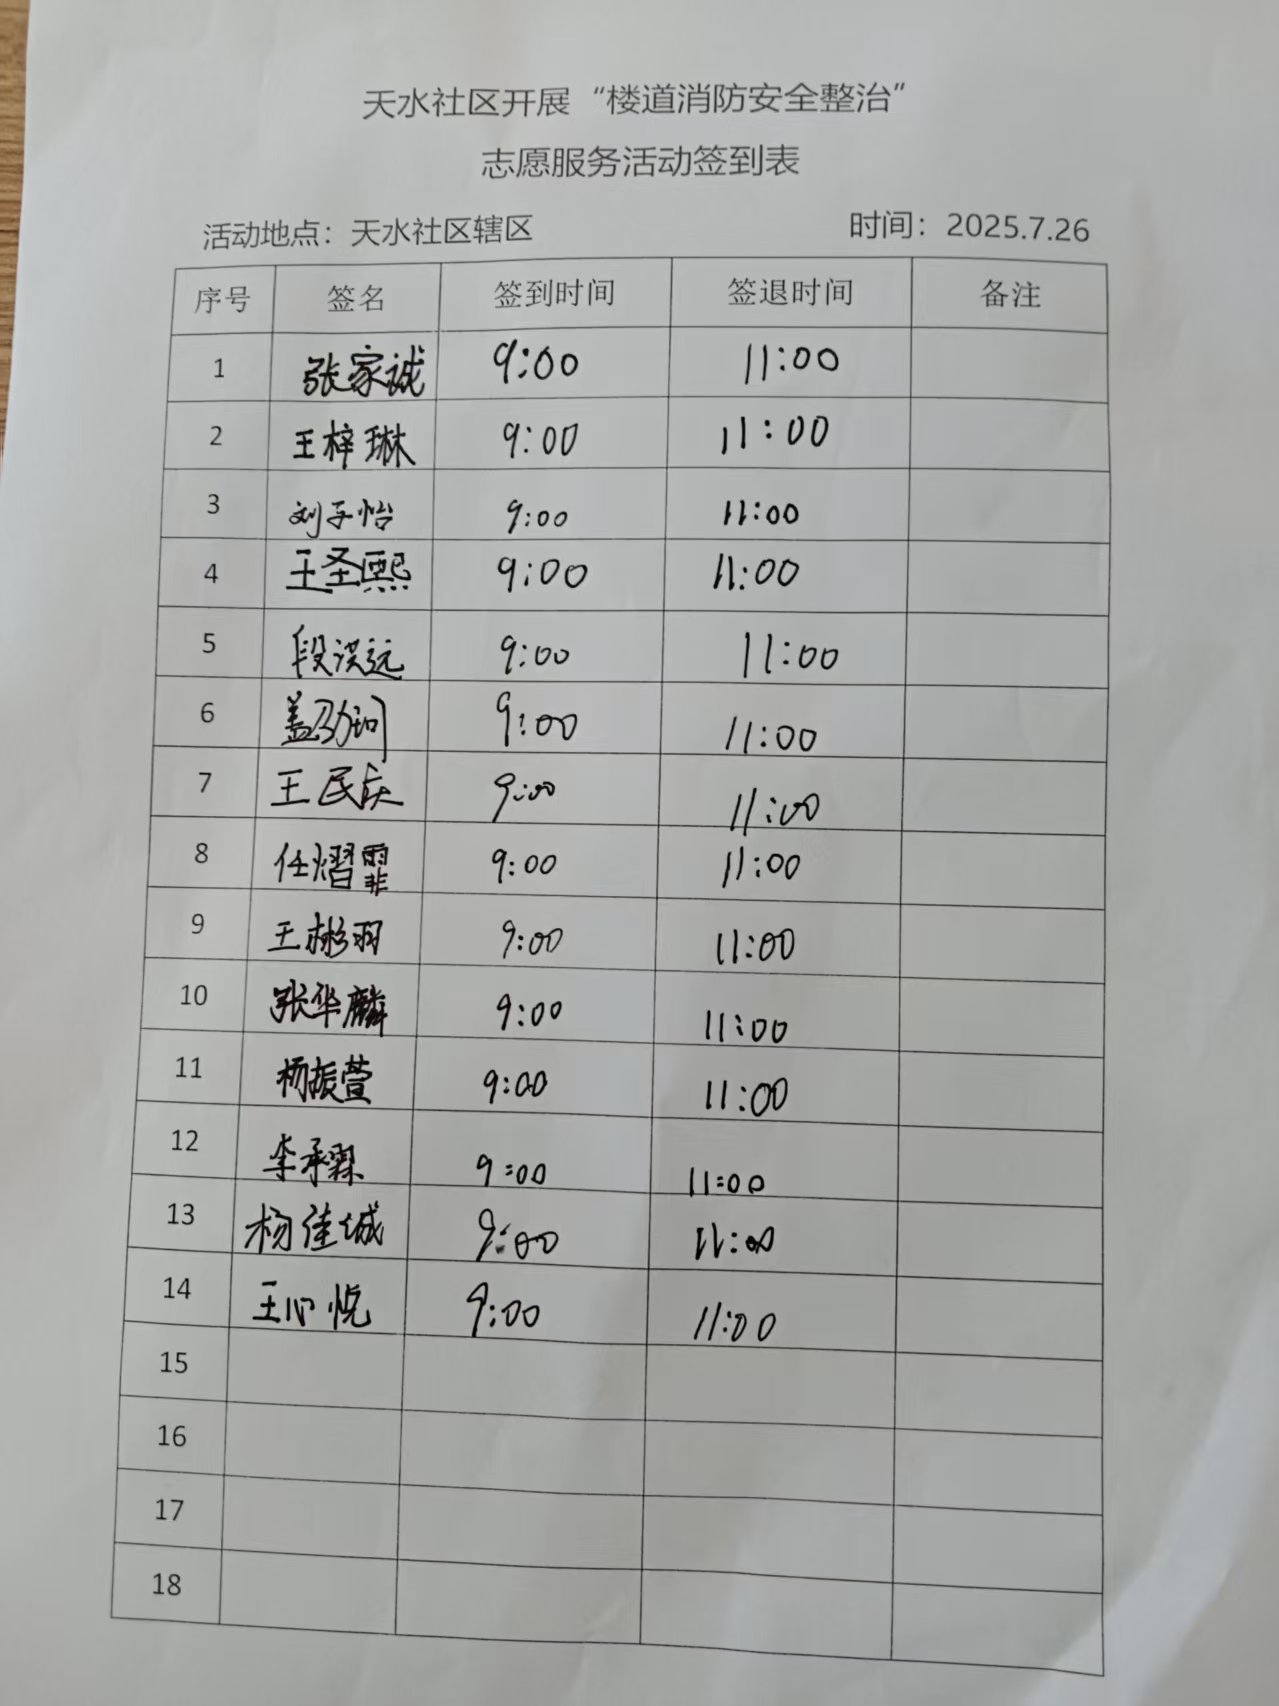 天水社区开展“楼道消防安全整治”
志愿服务活动签到表
活动地点：天水社区辖区 时间：2025.7.26
序号 签名 签到时间 签退时间 备注
1 张家诚 9:00 11:00
2 王梓琳 9:00 11:00
3 刘子怡 9:00 11:00
4 王圣熙 9:00 11:00
5 段淇远 9:00 11:00
6 盖 9:00 11:00
7 王民庆 9:00 11:00
8 任熠霏 9:00 11:00
9 王彬羽 9:00 11:00
10 张华麟 9:00 11:00
11 杨振萱 9:00 11:00
12 李承霖 9:00 11:00
13 杨佳城 9:00 11:00
14 王心悦 9:00 11:00
15
16
17
18